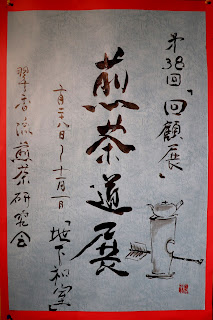 第38回「回顧展」
煎茶道展
十一月一日「地下和室」
翠香流煎茶研究会